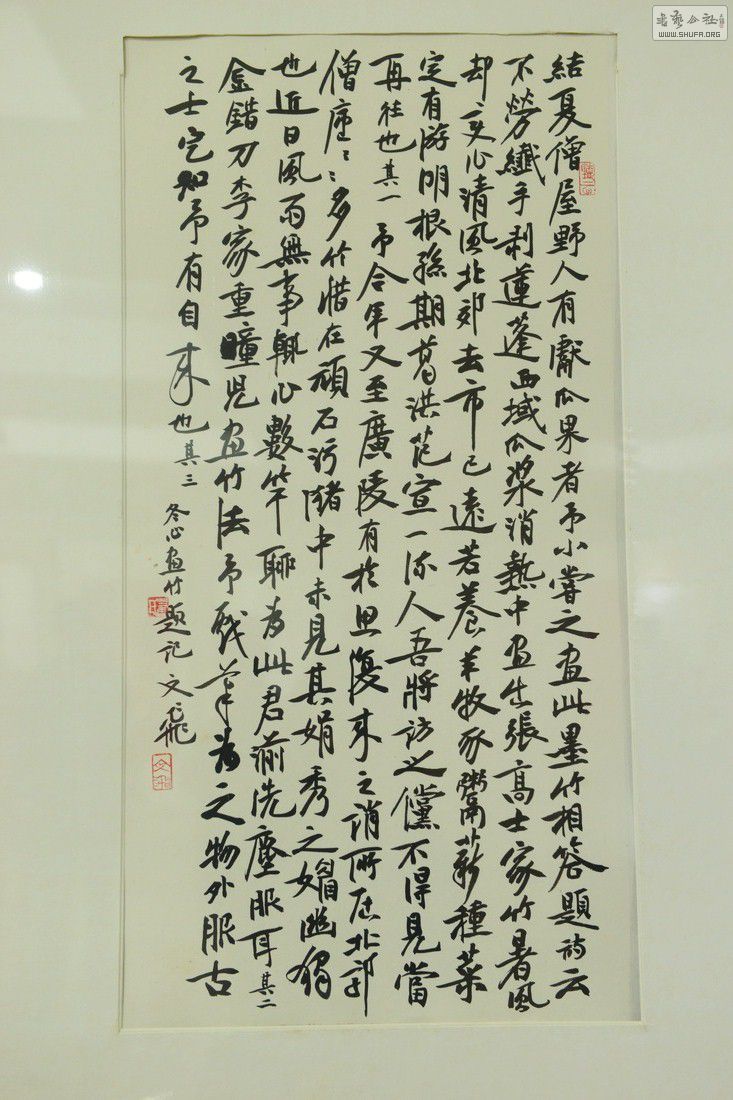 結夏僧屋野人有獻瓜果者予小嘗之畫此墨竹相答題詩云
不勞纖手剥蓮蓬西域瓜漿消熱中畫出張高士家竹暑風
却交心清風北郊去市已遠若養羊牧豕鬻薪種菜
定有游明根孫期葛洪范宣一流人吾將訪之儻不得見當
再往也其一 予今年又至廣陵有於思復來之誚所居北郭
僧廬〻多竹惜在頑石污潴中未見其娟秀之媚幽獨
也近日風雨無事輒心數竿聊為此君湔洗塵服耳其二
金錯刀李家重瞳兒畫竹法予戲筆為之物外服古
之士定知予有自來也其三
冬心畫竹題記 文飛
書藝公社
WWW.SHUFA.ORG